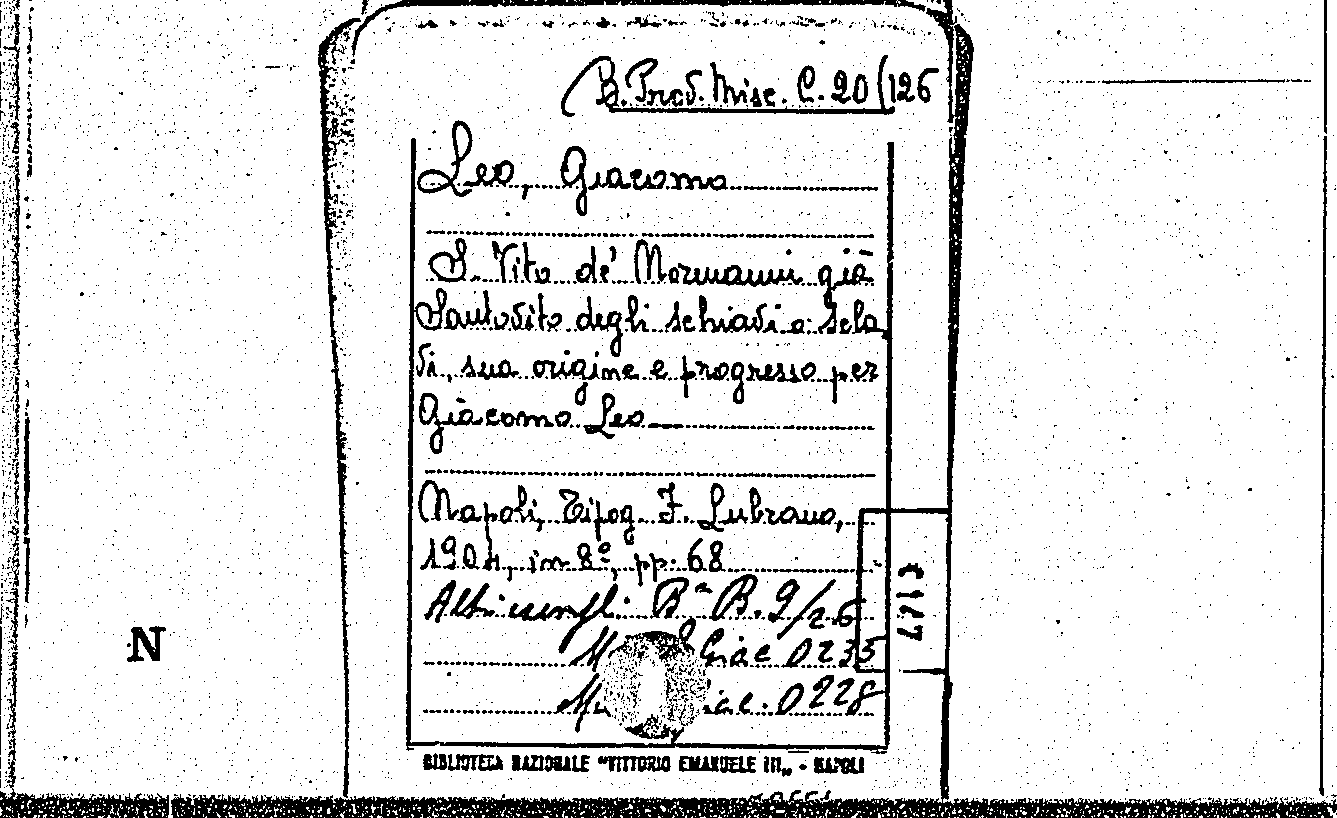 B. Prov. Misc. C. 20(126
Leo, Giacomo
S. Vito de' Normanni già
Santovito degli schiavi o Sela
vi, sua origine e progresso per
Giacomo Leo
Napoli, Tipog. F. Lubrano,
1904, in 8º, pp. 68
Altri esempl: Bª B. 9/26
Giac 0235
0228
N
BIBLIOTECA NAZIONALE "VITTORIO EMANUELE III„ - NAPOLI